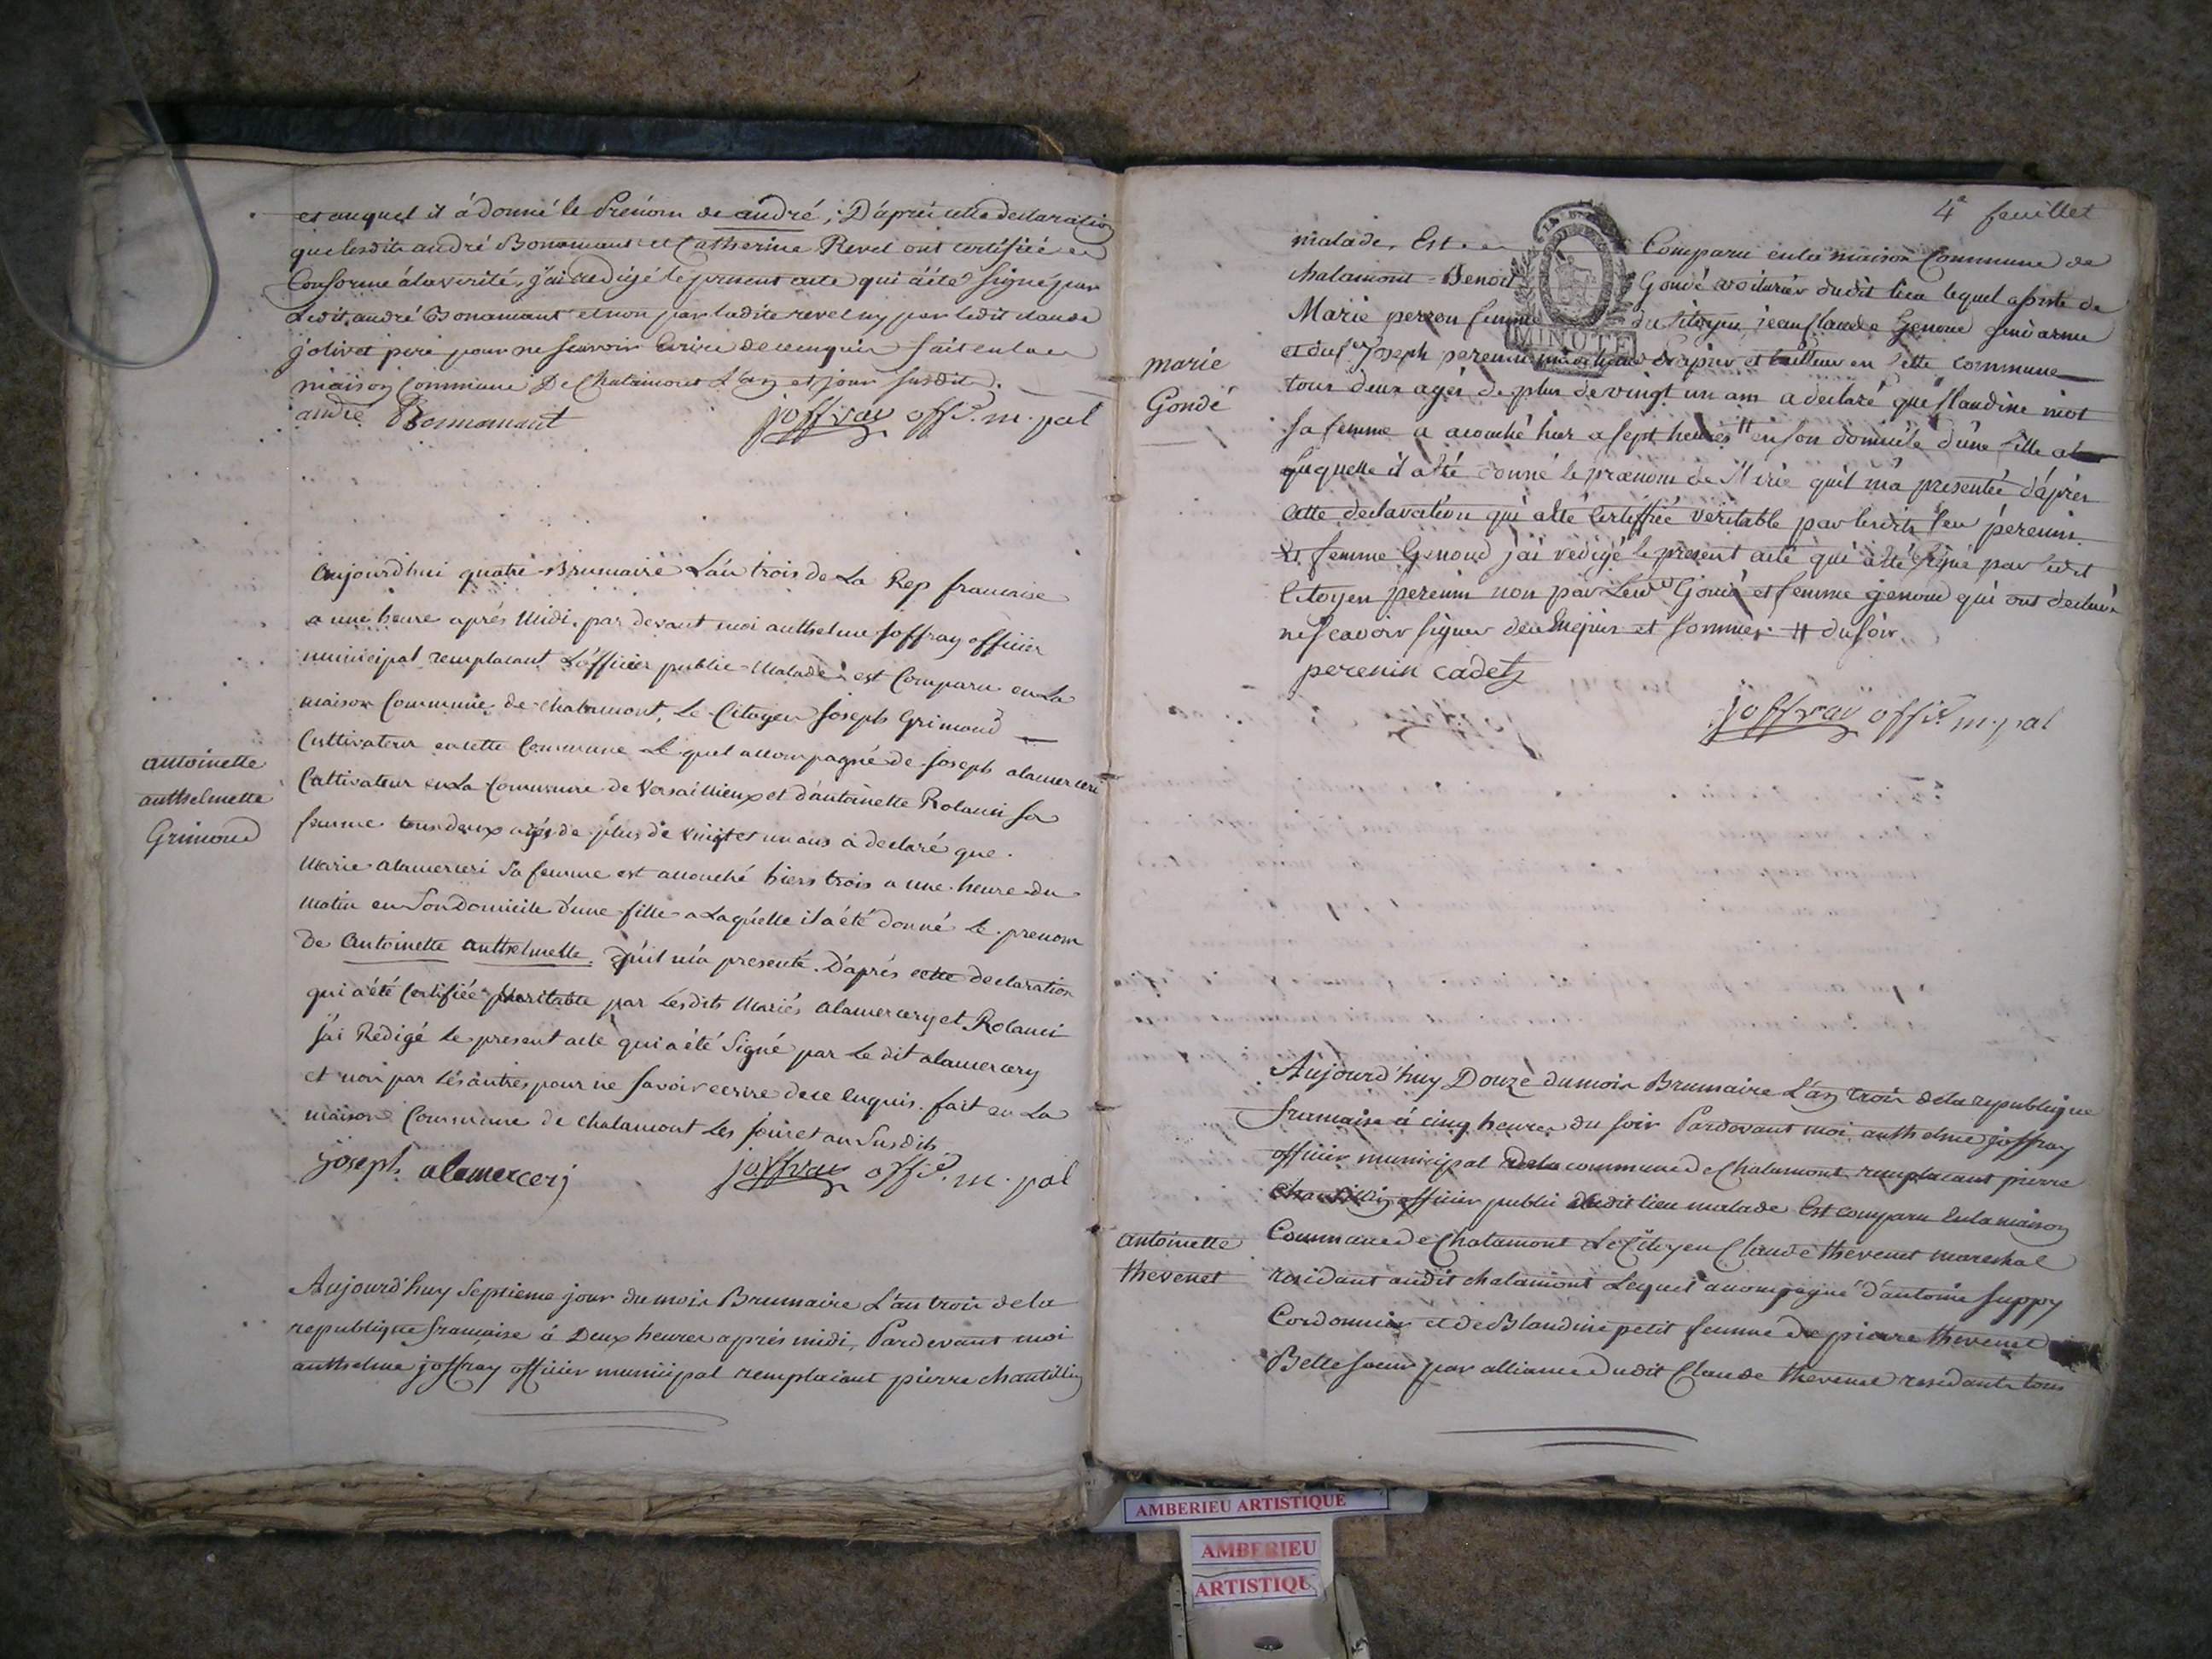 et auquel il à donné le Prénom de andré, D'aprés cette declaration
que lesdits andré Bonnamant et Catherine Revel ont certifiéé
Conforme à la verité, j'ai redigé le present acte qui à été signé par
Ledit andré Bonamant et non par ladite revel ny par ledit claude
jolivet pere pour ne scavoir Ecrire de ce enquis fait en la
maison Commune De Chalamont L'an et jour susdits.
andré Bonnamant joffray offi. m. pal
antoinette
anthelmette
Grimoud
Aujourdhui quatre Brumaire L'an trois de La Rep francaise
a une heure aprés Midi, par devant moi anthelme joffray officier
municipal remplacant L'officier public Malade est Comparu en La
maison Commune de chalamont, Le Citoyen Joseph Grimoud
Cultivateur en cette Commune Le quel accompagné de Joseph alamerceri
Cultivateur en La Commune de Versaillieux et d'antoinette Rolauci sa
femme tous deux agés de plus de vingt et un ans à declaré que
Marie alamerceri Sa femme est accouché hiers trois a une heure du
Matin en Son Domicile d'une fille a Laquelle il a été donné Le prenom
De Antoinette anthelmette, qu'il m'a presenté. D'aprés cette declaration
qui a été Certifiéé veritable par Lesdits Mariés alamercery et Rolauci
J'ai Rédigé Le present acte qui a été Signé par Le dit alamercery
et non par Les autres pour ne Savoir ecrire de ce Enquis. fait en La
maison Commune de chalamont Les jour et an Susdits
joseph alamercerj joffray offi. m. pal
Aujourd'huy Septieme jour du mois Brumaire L'an trois de la
republique francaise à Deux heures aprés midi, Pardevant moi
anthelme joffray officier municipal remplacant pierre chantillin
4e feuillet
marie
Gondé
malade, Est Comparu en la maison Commune de
chalamont Benoit Gondé voiturier dudit lieu lequel assisté de
Marie perron femme du Citoyen jean Claude Genoud gendarme
et du Cen Joseph perenin en cette commune
tous deux agés de plus de vingt un ans a declaré que Claudine niot
sa femme a acouché hier a sept heures # en son domicile d'une fille a
laquelle il a été donné le prænom de Mirie quil m'a presentée d'aprés
cette declaration qui a été certiffiée veritable par lesdits Cen perenin
et femme Genoud j'ai redigé le present acte qui a été signé par ledit
Citoyen perenin non par Gondé et femme genoud qui ont declaré
ne scavoir signer de ce Enquis et sommés. # du soir
perenin cadet
joffray offi. m. pal
MINUTE
antoinette
thevenet
Aujourd'huy Douze du mois Brumaire L'an trois de la republique
francaise á cinq heures du soir Pardevant moi anthelme joffray
officier municipal de la commune de Chalamont remplacant pierre
chantillin officier public dudit lieu malade Est comparu En la maison
Commune de Chalamont Le Citoyen Claude thevenet mareshal
residant audit chalamont Lequel acompagné d'antoine suppy
Cordonnier et de Blandine petit femme de pierre thevenet
Belle soeur par alliance dudit Claude thevenet residants tous
AMBERIEU ARTISTIQUE
AMBERIEU
ARTISTIQU